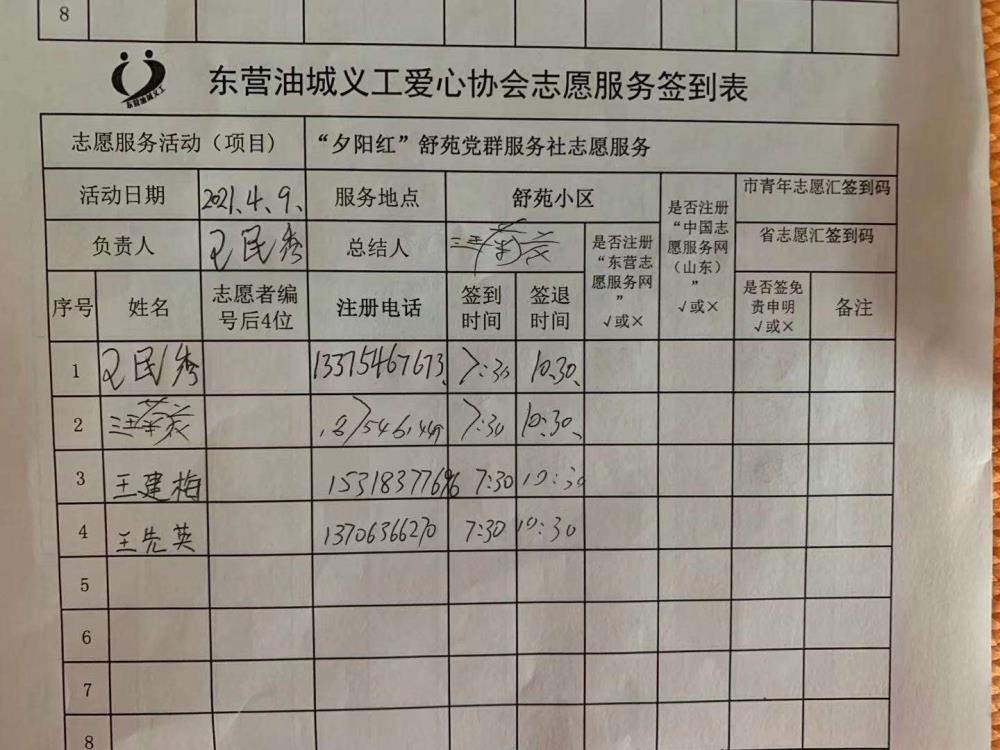 8
东营油城义工
东营油城义工爱心协会志愿服务签到表
志愿服务活动（项目） “夕阳红”舒苑党群服务社志愿服务
活动日期 2021.4.9. 服务地点 舒苑小区 是否注册“中国志愿服务网（山东）” √或× 市青年志愿汇签到码
负责人 民秀 总结人 是否注册“东营志愿服务网” √或× 省志愿汇签到码
序号 姓名 志愿者编号后4位 注册电话 签到时间 签退时间 是否签免责申明 √或× 备注
1 民秀 13375467673 7:30 10.30
2 7:30 10:30
3 王建梅 7:30 10:30
4 王先英 13706366270 7:30 10:30
5
6
7
8